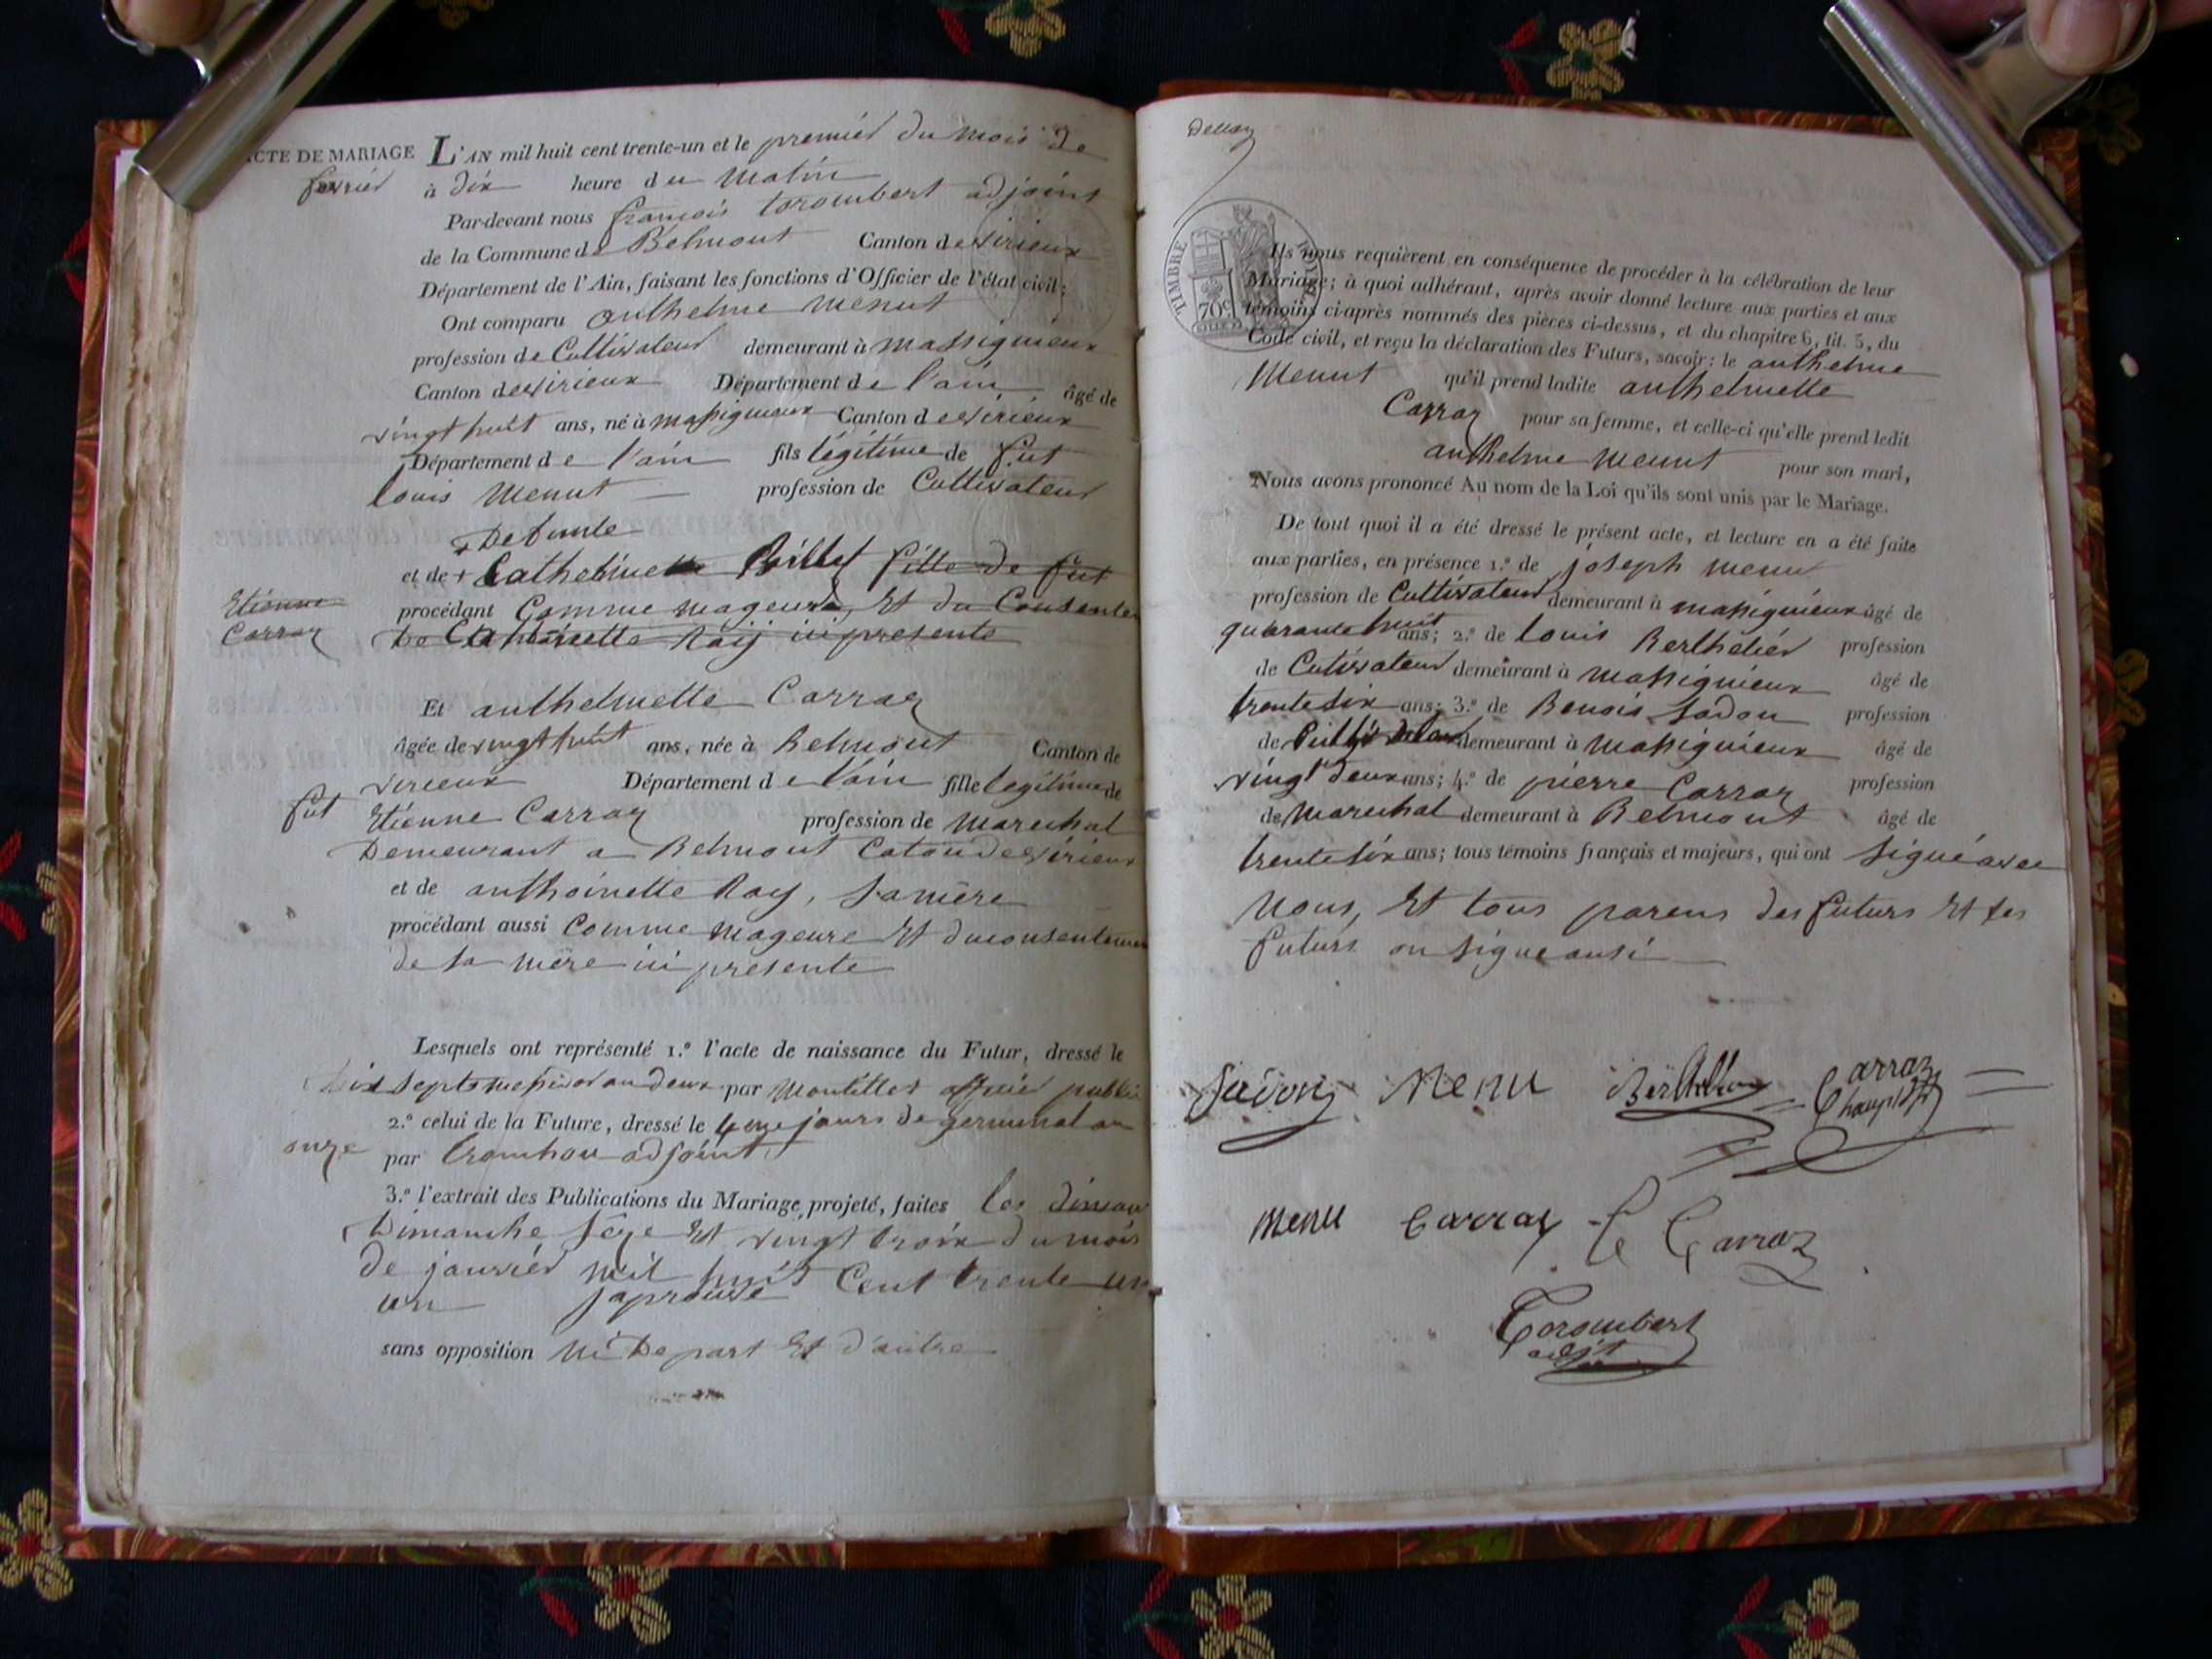 ACTE DE MARIAGE L'AN mil huit cent trente-un et le premier du mois de
fevrier à dix heure du matin
Par-devant nous françois torombert adjoint
de la Commune de Belmont Canton de virieux
Département de l'Ain, faisant les fonctions d'Officier de l'état civil;
Ont comparu anthelme menut
profession de Cultivateur demeurant à massignieux
Canton de virieux Département de l'ain âgé de
vingt huit ans, né à massignieux Canton de virieux
Département de l'ain fils légitime de fut
louis menut profession de Cultivateur
+ Defunte
et de + Billet fille de fut
Etienne procédant Comme mageur, Et du Consente
Carraz De antoinette Raij ici presente
Et anthelmette Carraz
âgée de vingt huit ans, née à Belmont Canton de
virieux Département de l'ain fille legitime de
fut Etienne Carraz profession de marechal
Demeurant a Belmont Caton de virieux
et de anthoinette Ray, sa mère
procédant aussi Comme mageure Et du consentemen
de sa mère ici presente
Lesquels ont représenté 1.º l'acte de naissance du Futur, dressé le
an deux par montillet public
2.º celui de la Future, dressé le 4me jours de germinal an
onze par adjoint
3.º l'extrait des Publications du Mariage projeté, faites les
Dimanche seze Et vingt trois du mois
de janvier mil huit Cent trente un
un japrouve
sans opposition ni De part Et d'autre
TIMBRE ROYAL
70c
Ils nous requièrent en conséquence de procéder à la célébration de leur
Mariage; à quoi adhérant, après avoir donné lecture aux parties et aux
témoins ci-après nommés des pièces ci-dessus, et du chapitre 6, tit. 5, du
Code civil, et reçu la déclaration des Futurs, savoir: le anthelme
Menut qu'il prend ladite anthelmette
Carraz pour sa femme, et celle-ci qu'elle prend ledit
anthelme menut pour son mari,
Nous avons prononcé Au nom de la Loi qu'ils sont unis par le Mariage.
De tout quoi il a été dressé le présent acte, et lecture en a été faite
aux parties, en présence 1.º de joseph menu
profession de Cultivateur demeurant à massignieux âgé de
quarante huit ans; 2.º de louis Berthelier profession
de Cutivateur demeurant à massignieux âgé de
trente six ans; 3.º de Benois sadon profession
de demeurant à massignieux âgé de
vingt deux ans; 4.º de pierre Carraz profession
de marechal demeurant à Belmont âgé de
trente six ans; tous témoins français et majeurs, qui ont signé avec
nous, Et tous parens des futurs Et les
futurs on signe ausi
Menu Carraz
menu Carraz Carraz
Torombert
adjt